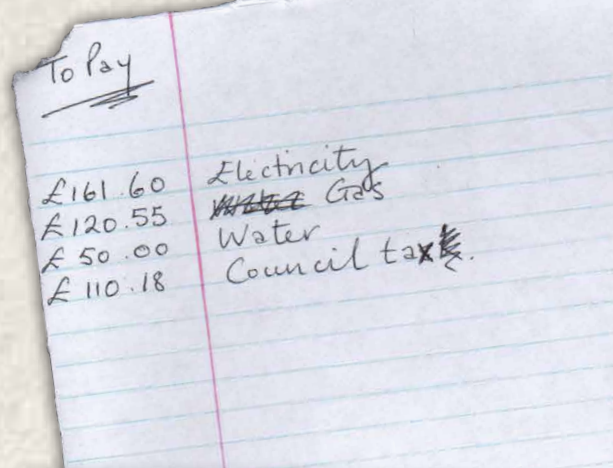 To Pay
£161.60 Electricity
£120.55 Gas
£50.00 Water
£110.18 Council tax.